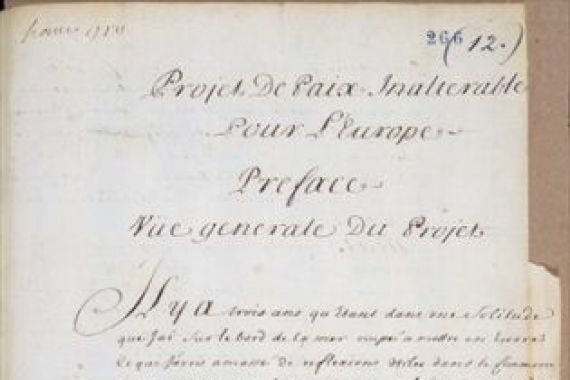 266 (12.)
Projet De Paix Inalterable
Pour L'Europe
Preface
Vüe generale Du Projet
Il y a trois ans qu'Etant dans une Solitude
que Jai Sur le bord de la mer occupé a mettre en
ce que J'avois amassé de reflexions utiles dans le